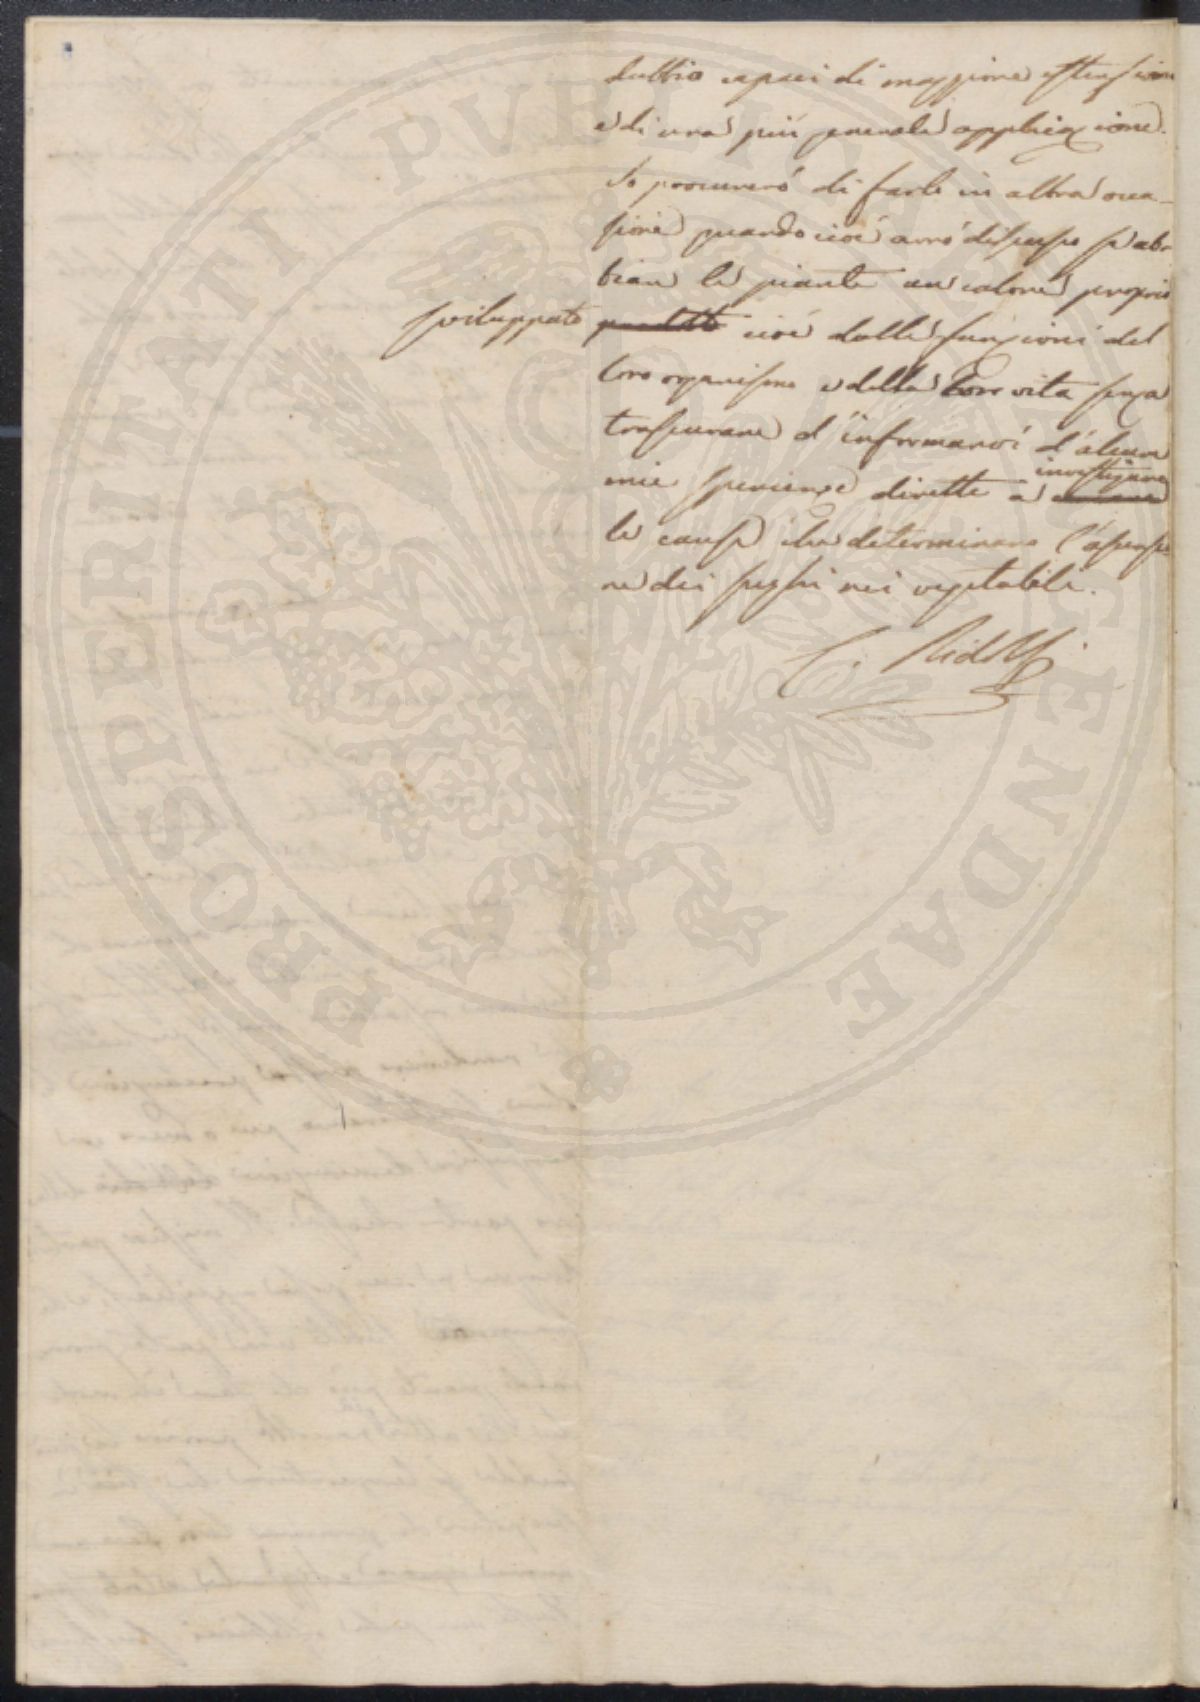 dubbio capaci di maggiore estensione
e di una più generale applicazione.
Io procurerò di farle in altra occa-
sione quando cioè avrò discusso se ab-
bian le piante un calore proprio
sviluppato prodotto cioè dalle funzioni del
loro organismo e della loro vita senza
trascurare d'informarvi d'alcune
mie sperienze dirette a investigare
le cause che determinano l'ascensio
ne dei sughi nei vegetabili.
C. Ridolfi
PROSPERITATI PUBLICAE AUGENDAE